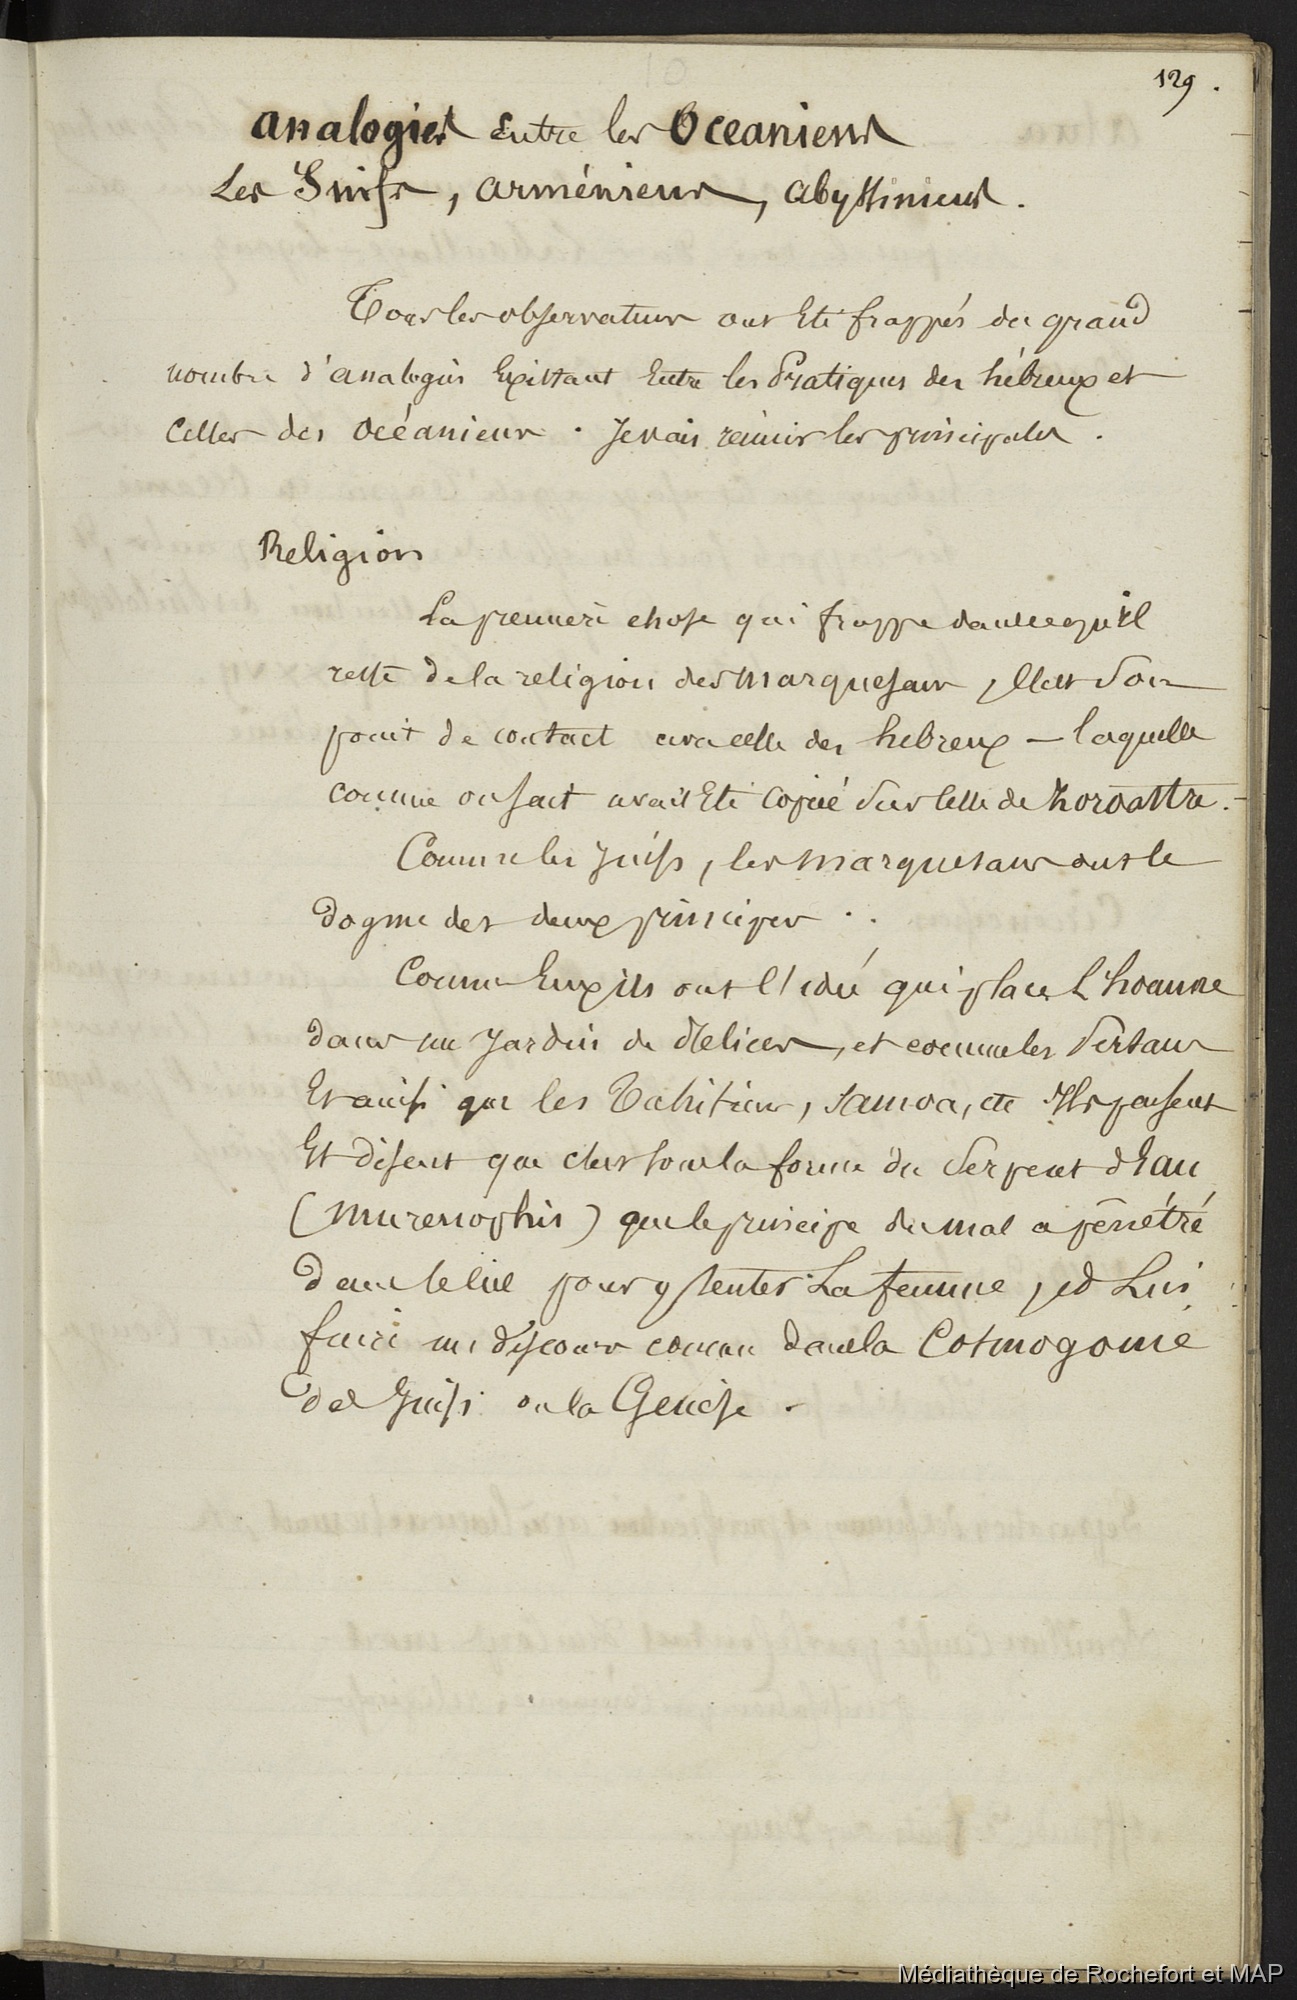 129.
analogies Entre les Oceaniens
Les Juifs, arméniens, abyssiniens.
Tous les observateurs ont Eté frappés du grand
nombre d'analogies Existant Entre les Pratiques des hébreux et
Celles des Océaniens. Je vais réunir les principales.
Religion
La premiere chose qui frappe dans ce qu'il
reste de la religion des Marquesans, c'est son
point de contact avec celle des hebreux — laquelle
comme on sait avait Eté copié sur celle de Zoroastre.-
Comme les Juifs, les Marquesans ont le
dogme des deux principes..
Comme Eux ils ont l'idée qui place L'homme
dans un Jardin de délices, et comme les Persans
Et ainsi que les Tahitiens, Samoa, etc Ils pensent
Et disent que c'est sous la forme du Serpent d'Eau
(Murenophis) que le principe du mal a pénétré
dans le lieu pour y tenter La femme, et Lui
faire un discours connu dans la Cosmogonie
des Juifs ou la Genèse -
Médiathèque de Rochefort et MAP